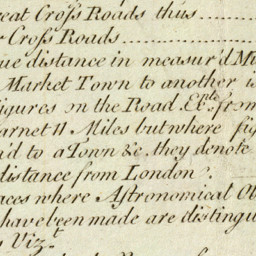 reat Croſs Roads thus
r Croſs Roads
ue distance in measur'd Mi
Market Town to another is
figures on the Road. Ex.ᵐᵖˡᵉ from
arnet 11 Miles but where fig
'd to a Town &c. they denote
distance from London.
aces where Aſtronomical Ob
have been made are distingu
s Viz.ᵗ